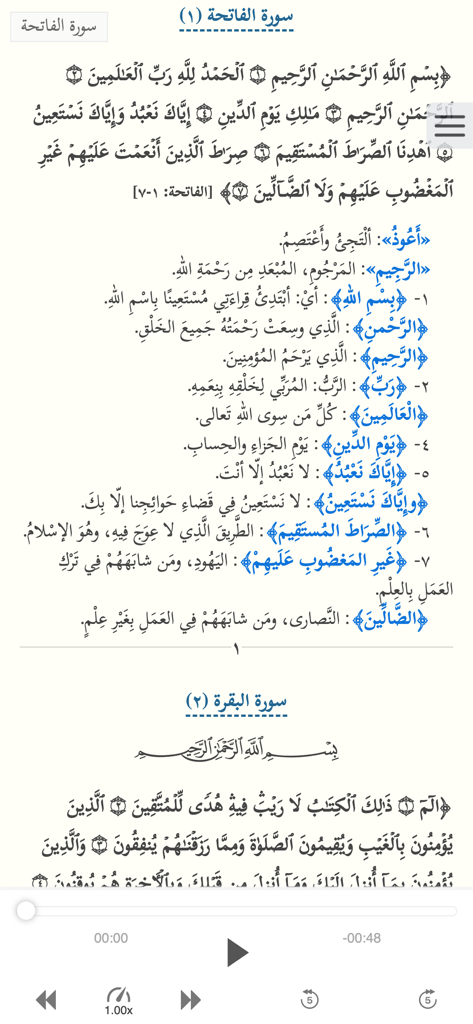 سورة الفاتحة (١)
سورة الفاتحة
﴿بِسْمِ ٱللَّهِ ٱلرَّحْمَـٰنِ ٱلرَّحِيمِ ۝١ ٱلْحَمْدُ لِلَّهِ رَبِّ ٱلْعَـٰلَمِينَ ۝٢
ٱلرَّحْمَـٰنِ ٱلرَّحِيمِ ۝٣ مَـٰلِكِ يَوْمِ ٱلدِّينِ ۝٤ إِيَّاكَ نَعْبُدُ وَإِيَّاكَ نَسْتَعِينُ
۝٥ ٱهْدِنَا ٱلصِّرَٰطَ ٱلْمُسْتَقِيمَ ۝٦ صِرَٰطَ ٱلَّذِينَ أَنْعَمْتَ عَلَيْهِمْ غَيْرِ
ٱلْمَغْضُوبِ عَلَيْهِمْ وَلَا ٱلضَّآلِّينَ ۝٧﴾ [الفاتحة: ١-٧]
«أَعُوذُ»: ألْتَجِئُ وأَعْتَصِمُ.
«الرَّجِيمِ»: المَرْجُومِ، المُبْعَدِ مِن رَحْمَةِ اللهِ.
١- ﴿بِسْمِ اللهِ﴾: أيْ: أبْتَدِئُ قِراءَتِي مُسْتَعِينًا بِاسْمِ اللهِ.
﴿الرَّحْمنِ﴾: الَّذِي وسِعَتْ رَحْمَتُهُ جَمِيعَ الخَلْقِ.
﴿الرَّحِيمِ﴾: الَّذِي يَرْحَمُ المُؤْمِنِينَ.
٢- ﴿رَبِّ﴾: الرَّبُّ: المُرَبِّي لِخَلْقِهِ بِنِعَمِهِ.
﴿الْعَالَمِينَ﴾: كُلِّ مَن سِوى اللهِ تَعالى.
٤- ﴿يَوْمِ الدِّينِ﴾: يَوْمِ الجَزاءِ والحِسابِ.
٥- ﴿إِيَّاكَ نَعْبُدُ﴾: لا نَعْبُدُ إلّا أنْتَ.
﴿وإِيَّاكَ نَسْتَعِينُ﴾: لا نَسْتَعِينُ فِي قَضاءِ حَوائِجِنا إلّا بِكَ.
٦- ﴿الصِّرَاطَ المُستَقِيمَ﴾: الطَّرِيقَ الَّذِي لا عِوَجَ فِيهِ، وهُوَ الإسْلامُ.
٧- ﴿غَيرِ المَغضُوبِ عَلَيهِمْ﴾: اليَهُودِ، ومَن شابَهَهُمْ فِي تَرْكِ
العَمَلِ بِالعِلْمِ.
﴿الضَّالِّينَ﴾: النَّصارى، ومَن شابَهَهُمْ فِي العَمَلِ بِغَيْرِ عِلْمٍ.
١
سورة البقرة (٢)
بِسْمِ ٱللَّهِ ٱلرَّحْمَـٰنِ ٱلرَّحِيمِ
﴿الٓمٓ ۝١ ذَٰلِكَ ٱلْكِتَـٰبُ لَا رَيْبَۛ فِيهِۛ هُدًى لِّلْمُتَّقِينَ ۝٢ ٱلَّذِينَ
يُؤْمِنُونَ بِٱلْغَيْبِ وَيُقِيمُونَ ٱلصَّلَوٰةَ وَمِمَّا رَزَقْنَـٰهُمْ يُنفِقُونَ ۝٣ وَٱلَّذِينَ
يُؤْمِنُونَ بِمَآ أُنزِلَ إِلَيْكَ وَمَآ أُنزِلَ مِن قَبْلِكَ وَبِٱلْـَٔاخِرَةِ هُمْ يُوقِنُونَ ۝٤
00:00
-00:48
1.00x
5
5